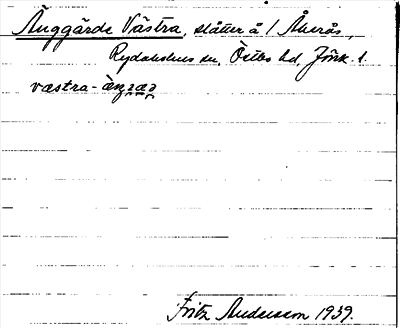 Änggärde Västra, slåtter å 1 Åkerås,
Rydaholms sn, Östbo hd, Jönk. l.
væstra-
Fritz Andersson 1939.